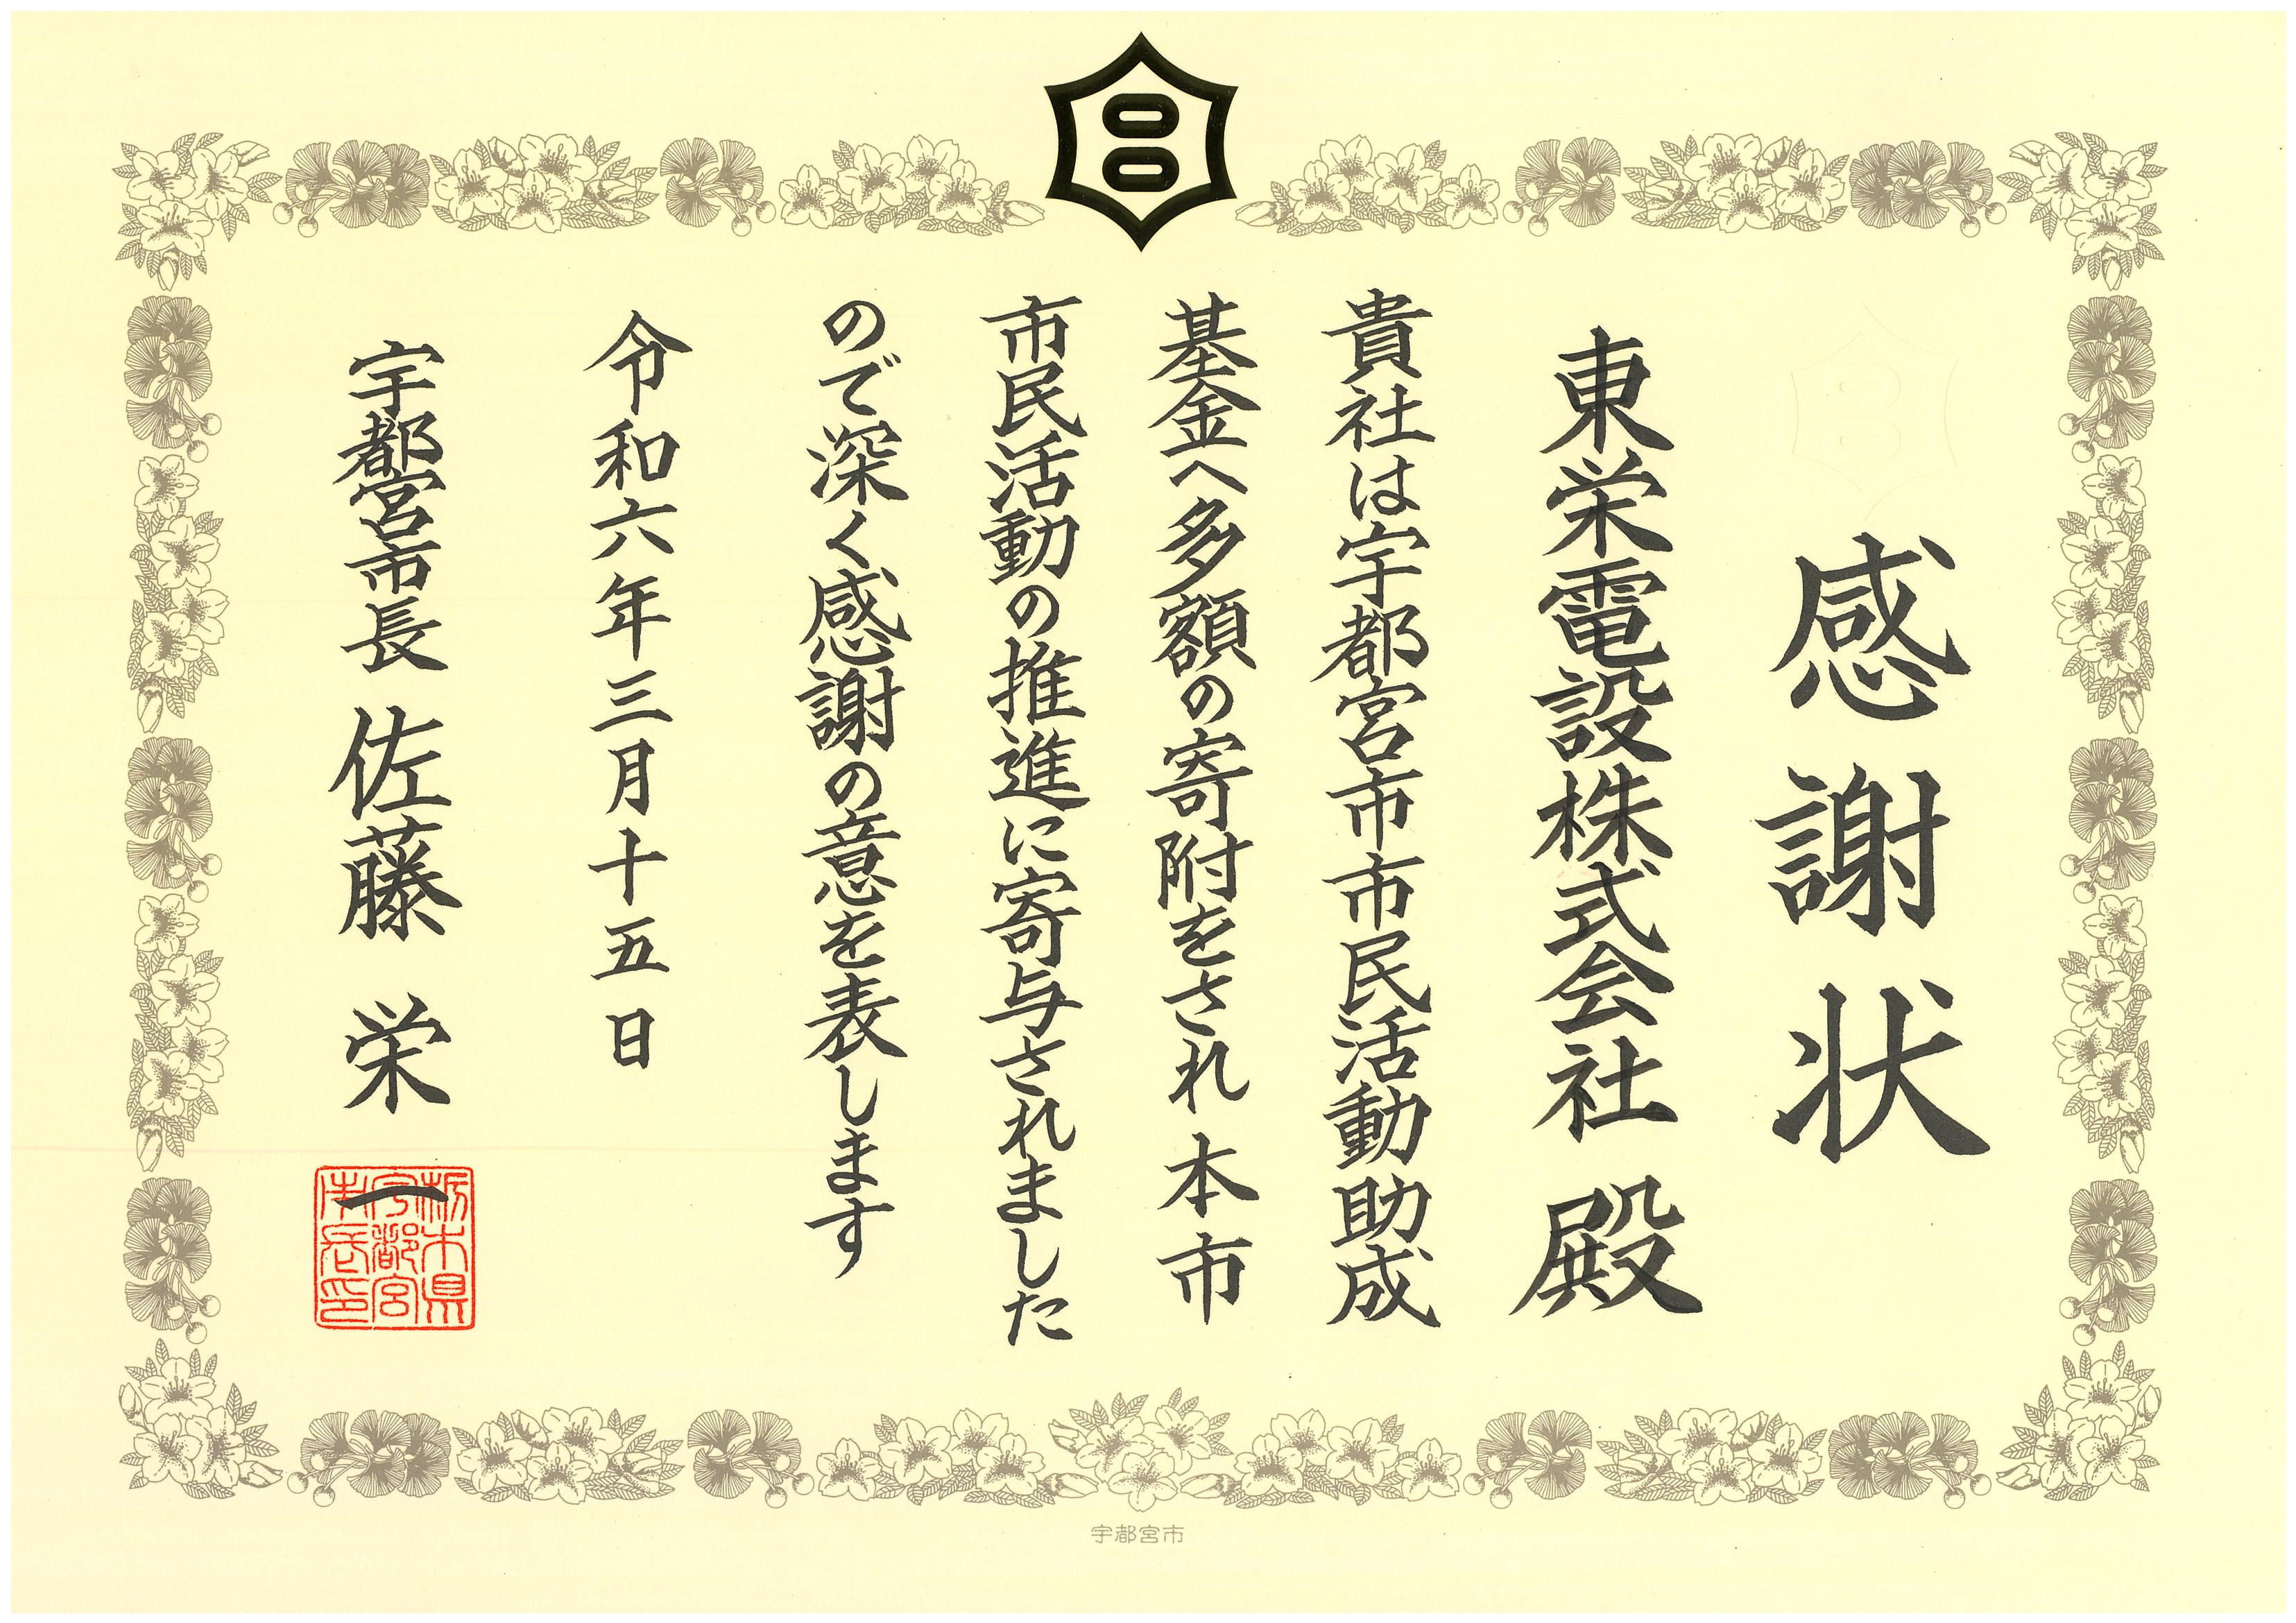 感謝状
東栄電設株式会社 殿
貴社は宇都宮市市民活動助成
基金へ多額の寄附をされ本市
市民活動の推進に寄与されました
ので深く感謝の意を表します
令和六年三月十五日
宇都宮市長 佐藤 栄一
栃木県
宇都宮
市長印
宇都宮市